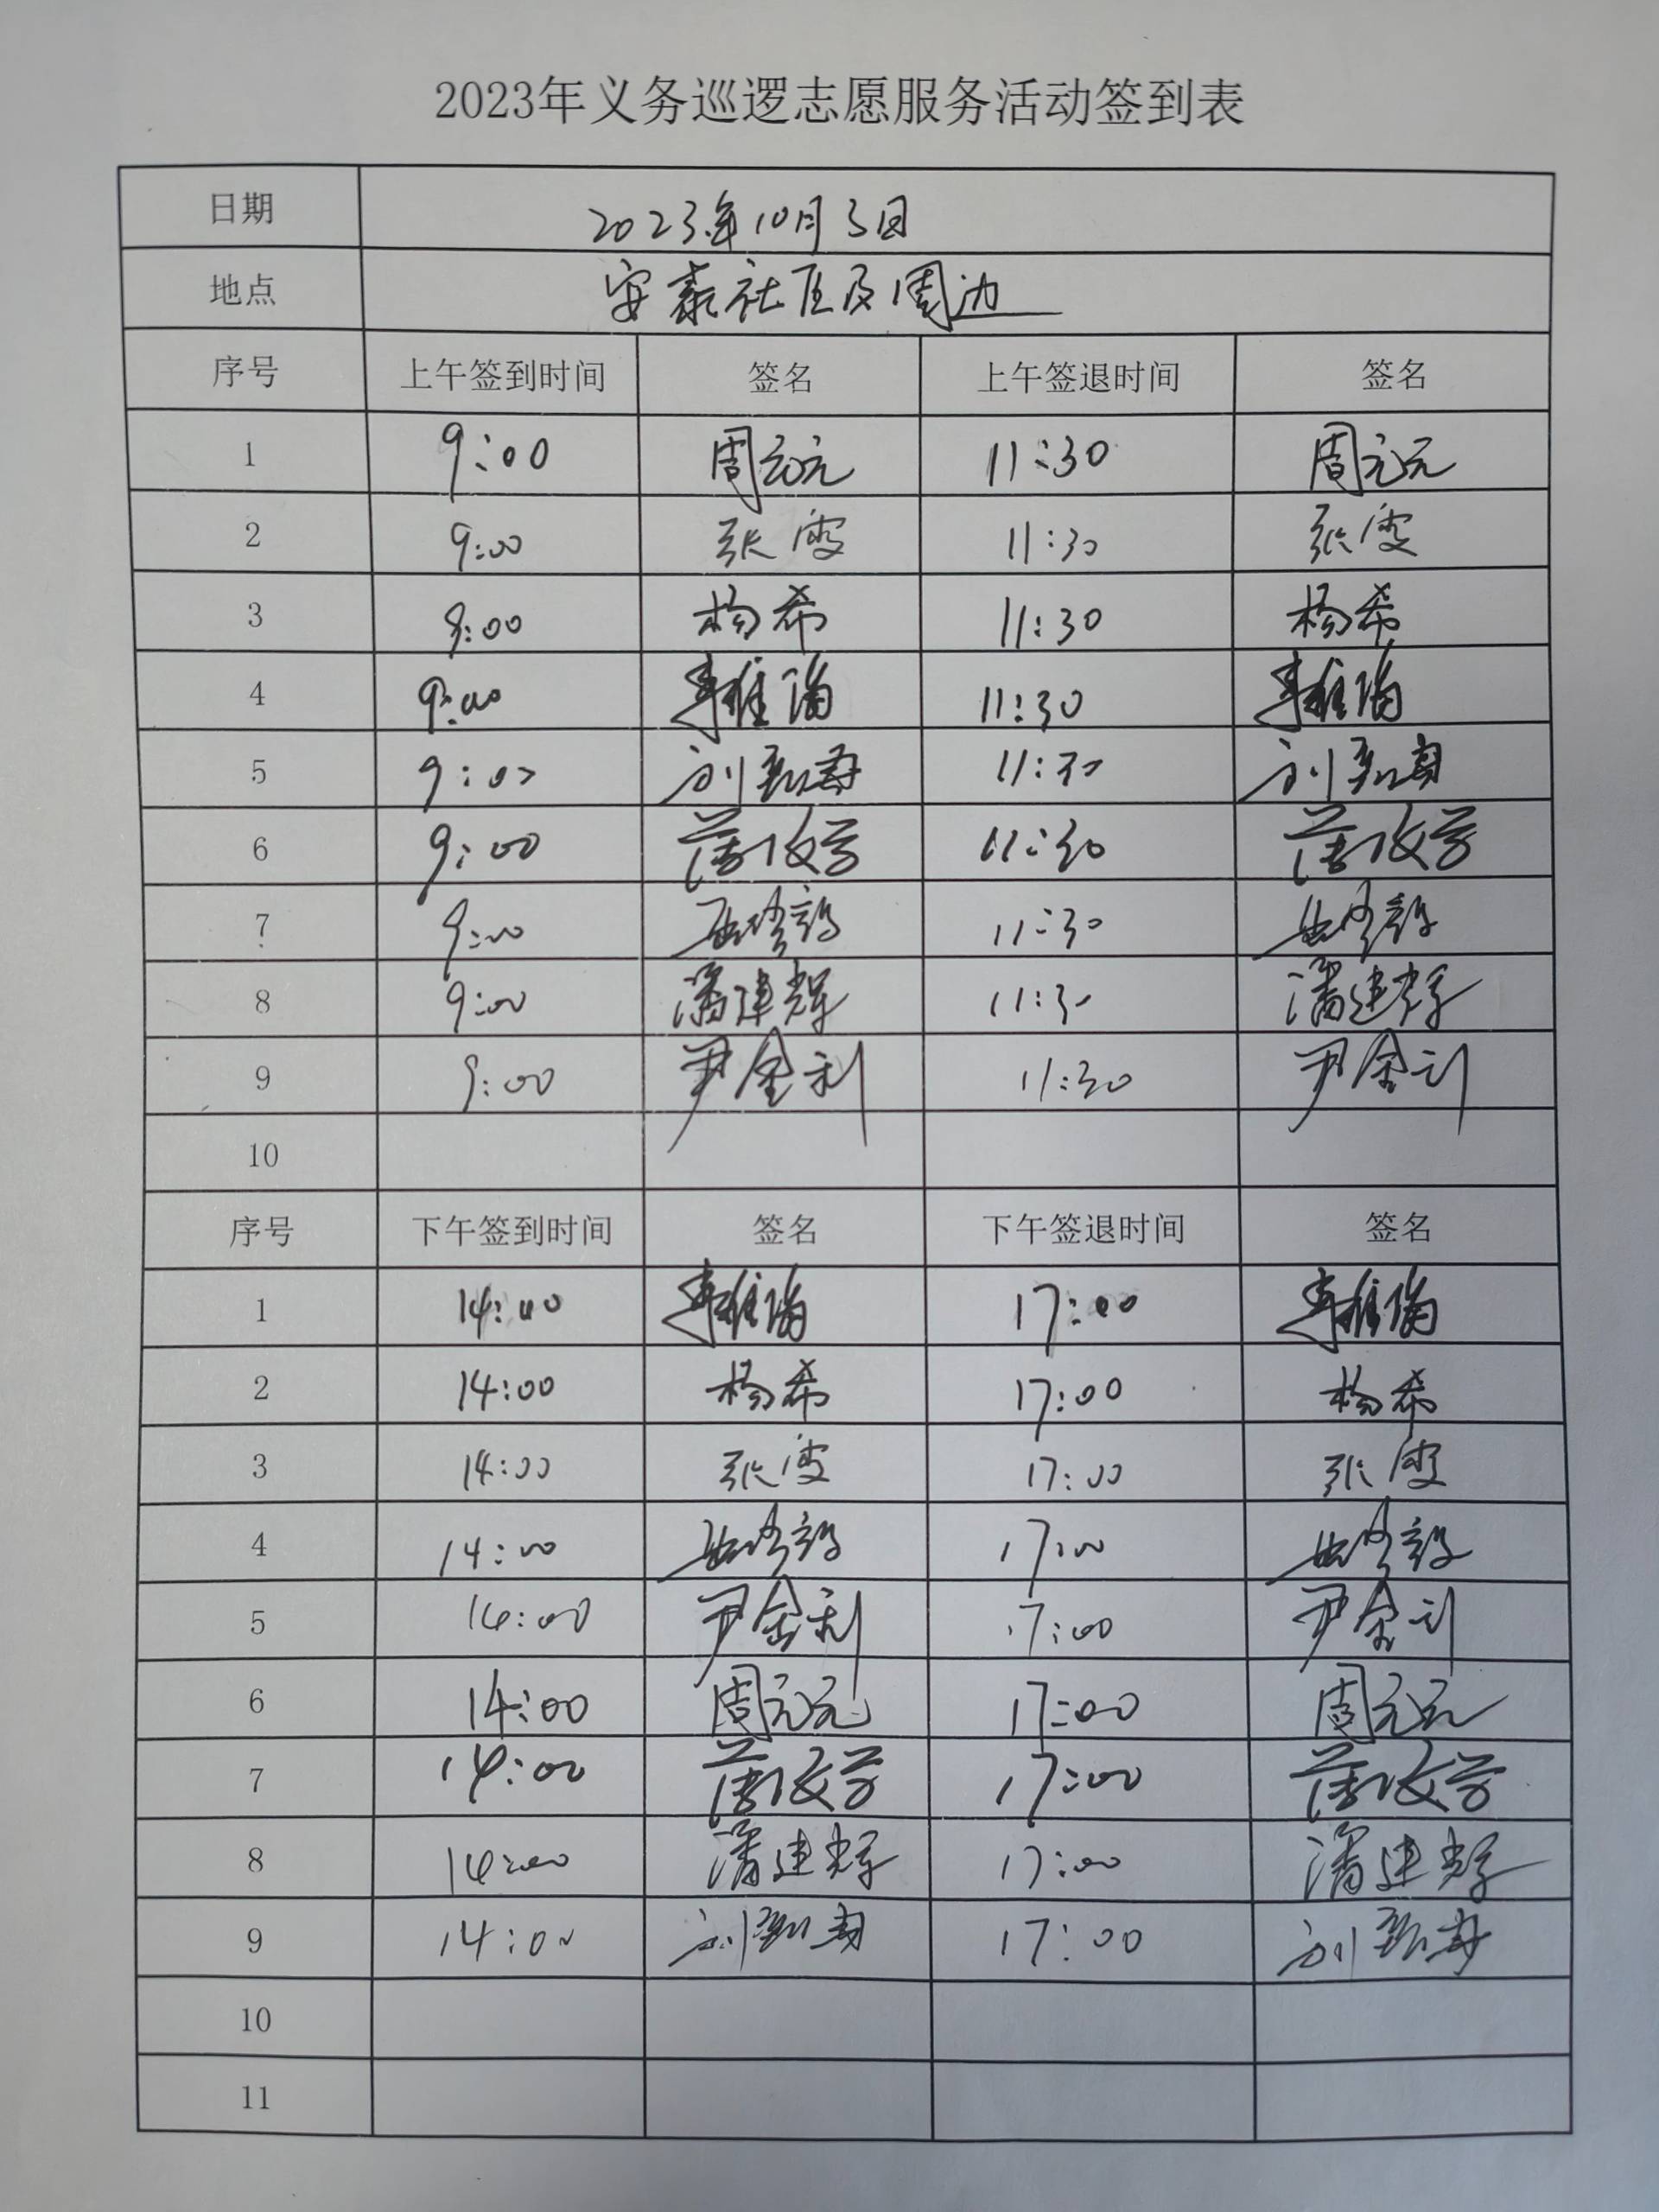 2023年义务巡逻志愿服务活动签到表
日期 2023年10月3日
地点 安泰社区及周边
序号 上午签到时间 签名 上午签退时间 签名
1 9:00 周元元 11:30 周元元
2 9:00 张雯 11:30 张雯
3 9:00 杨希 11:30 杨希
4 9:00 11:30
5 9:00 刘 11:30 刘
6 9:00 11:30
7 9:00 11:30
8 9:00 潘建辉 11:30 潘建辉
9 9:00 尹金利 11:30 尹金利
10
序号 下午签到时间 签名 下午签退时间 签名
1 14:00 17:00
2 14:00 杨希 17:00 杨希
3 14:00 张雯 17:00 张雯
4 14:00 17:00
5 14:00 尹金利 17:00 尹金利
6 14:00 周元元 17:00 周元元
7 14:00 17:00
8 14:00 潘建辉 17:00 潘建辉
9 14:00 刘 17:00 刘
10
11